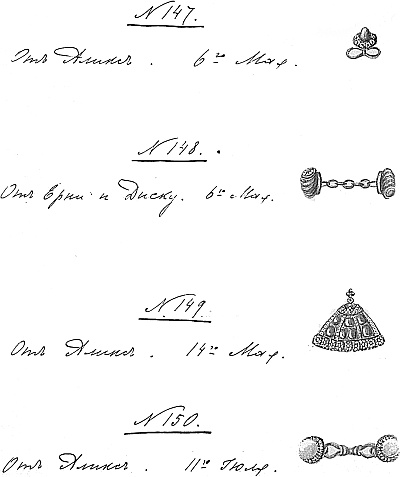 N 147.
Отъ Аликс. 6го Мая.
N 148.
Отъ Ерни и Диску. 6го Мая.
N 149.
Отъ Аликс. 14го Мая.
N 150.
Отъ Аликс. 11го Июля.